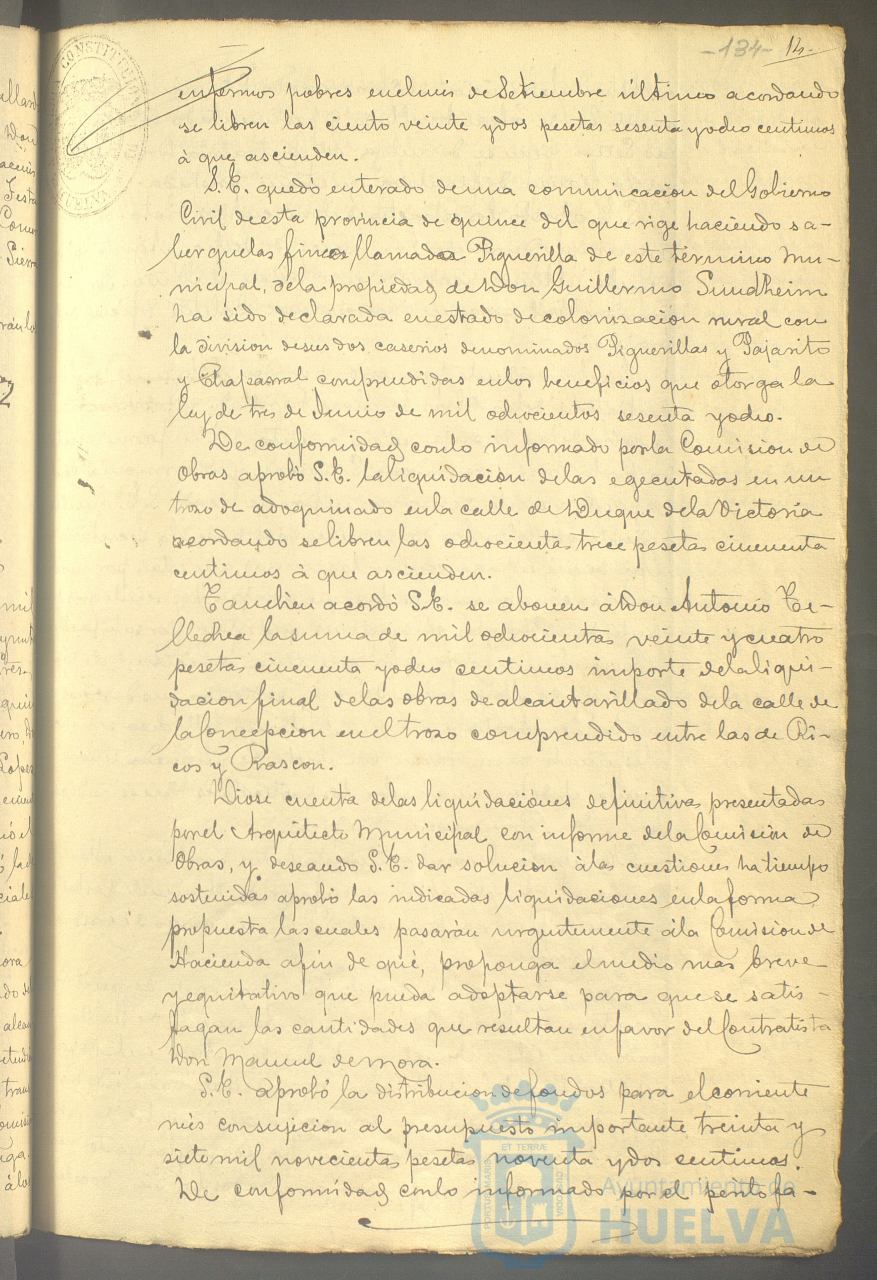 -134- 14.
enfermos pobres en el mes de Setiembre último acordando
se libren las ciento veinte y dos pesetas sesenta y ocho centimos
á que ascienden.
S. E. quedó enterado de una comunicacion del Gobierno
Civil de esta provincia de quince del que rige haciendo sa-
ber que las fincas llamadas Piguerilla de este término mu-
nicipal, de la propiedad de Don Guillermo Sundheim
ha sido declarada en estado de colonizacion rural con
la division de sus dos caserios denominados Piguerillas y Pajarito
y Chaparral comprendidas en los beneficios que otorga la
ley de tres de Junio de mil ochocientos sesenta y ocho.
De conformidad con lo informado por la Comision de
Obras aprobó S. E. la liquidacion de las egecutadas en un
trozo de adoquinado en la calle de Duque de la Victoria
acordando se libren las ochocientas trece pesetas cincuenta
centimos á que ascienden.
Tambien acordó S. E. se abonen á Don Antonio Te-
llechea la suma de mil ochocientas veinte y cuatro
pesetas cincuenta y ocho centimos importe de la liqui-
dacion final de las obras de alcantarillado de la calle de
la Concepcion en el trozo comprendido entre las de Ri-
cos y Rascon.
Diose cuenta de las liquidaciones definitivas presentadas
por el Arquitecto Municipal con informe de la Comision de
Obras, y deseando S. E. dar solucion á las cuestiones ha tiempo
sostenidas aprobó las indicadas liquidaciones en la forma
propuesta las cuales pasarán urgentemente á la Comision de
Hacienda a fin de que, proponga el medio mas breve
y equitativo que pueda adoptarse para que se satis-
fagan las cantidades que resultan en favor del Contratista
Don Manuel de Mora.
S. E. aprobó la distribucion de fondos para el corriente
mes con sujecion al presupuesto importante treinta y
siete mil novecientas pesetas noventa y dos centimos.
De conformidad con lo informado por el perito fa-
Ayuntamiento de
HUELVA